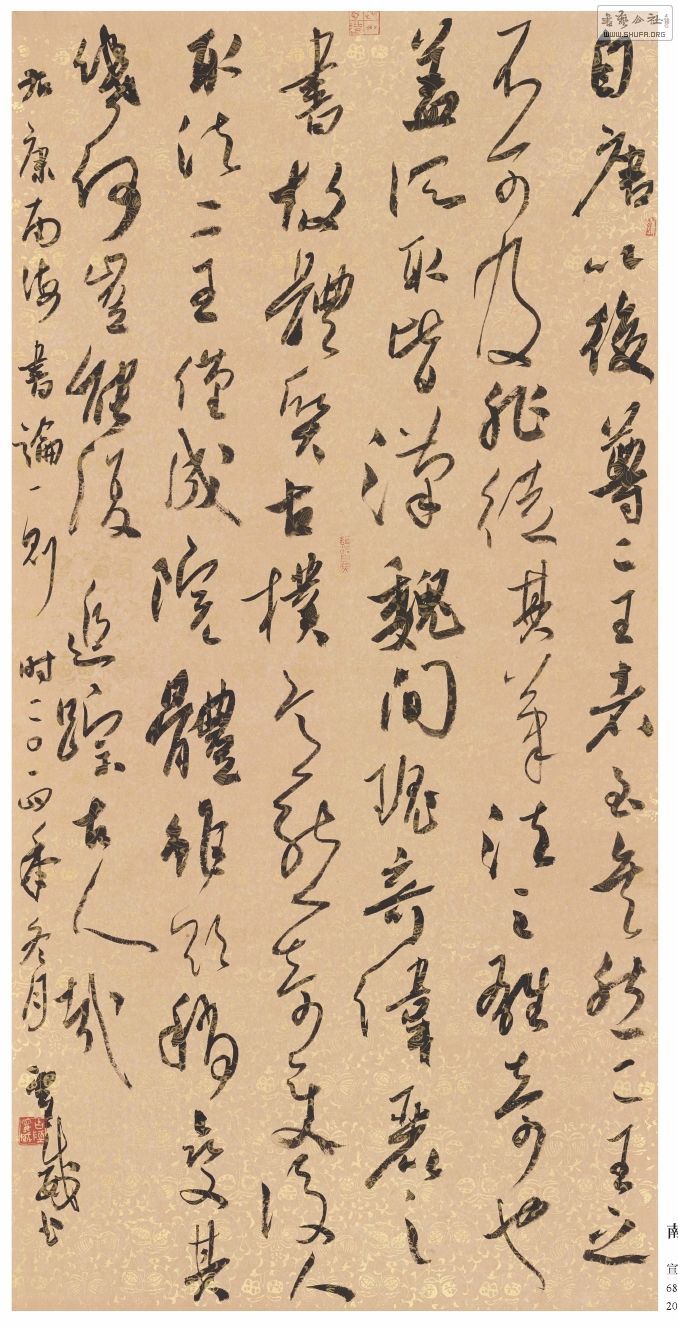 自唐以後尊二王者至矣然二王之
不可及非徒其筆法之雄奇也
蓋所取皆漢魏間瑰奇偉麗之
書故體質古樸意態奇變後人
取法二王僅成院體雖欲稍變其
幾何豈能復追踪古人哉
康南海書論一則 时二〇一四年冬月
書藝公社
WWW.SHUFA.ORG
南
宣
68
20